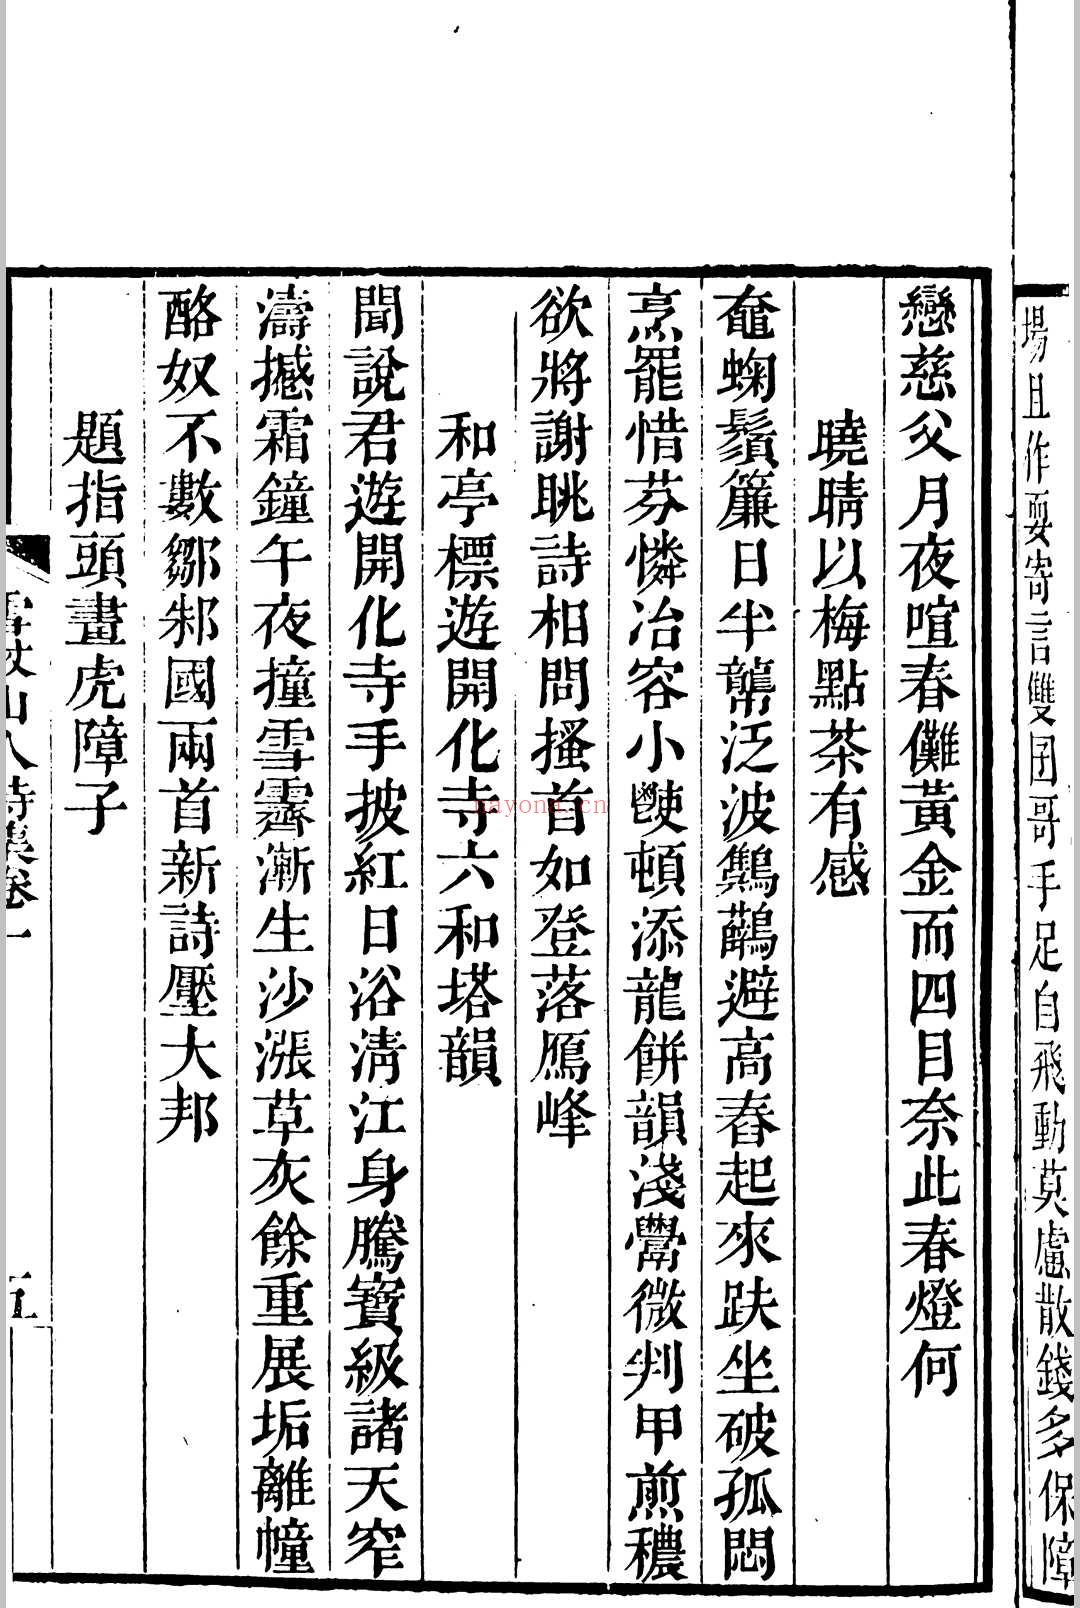 場且作耍寄言雙囝哥手足自飛動莫慮散錢多保障
戀慈父月夜喧春儺黃金而四目奈此春燈何
曉晴以梅點茶有感
奩蜠鬚簾日半䰐泛波鷞鸕避高舂起來趺坐破孤悶
烹罷惜芬憐冶容小甌頓添龍餅韻淺甞微判甲煎穠
欲將謝眺詩相問搔首如登落鴈峰
和亭標遊開化寺六和塔韻
聞說君遊開化寺手披紅日浴清江身騰寶級諸天窄
濤撼霜鐘午夜撞雪霽漸生沙漲草灰餘重展垢離幢
酪奴不數鄒邾國兩首新詩壓大邦
題指頭畫虎障子
山人詩集卷一
五
nayona.cn